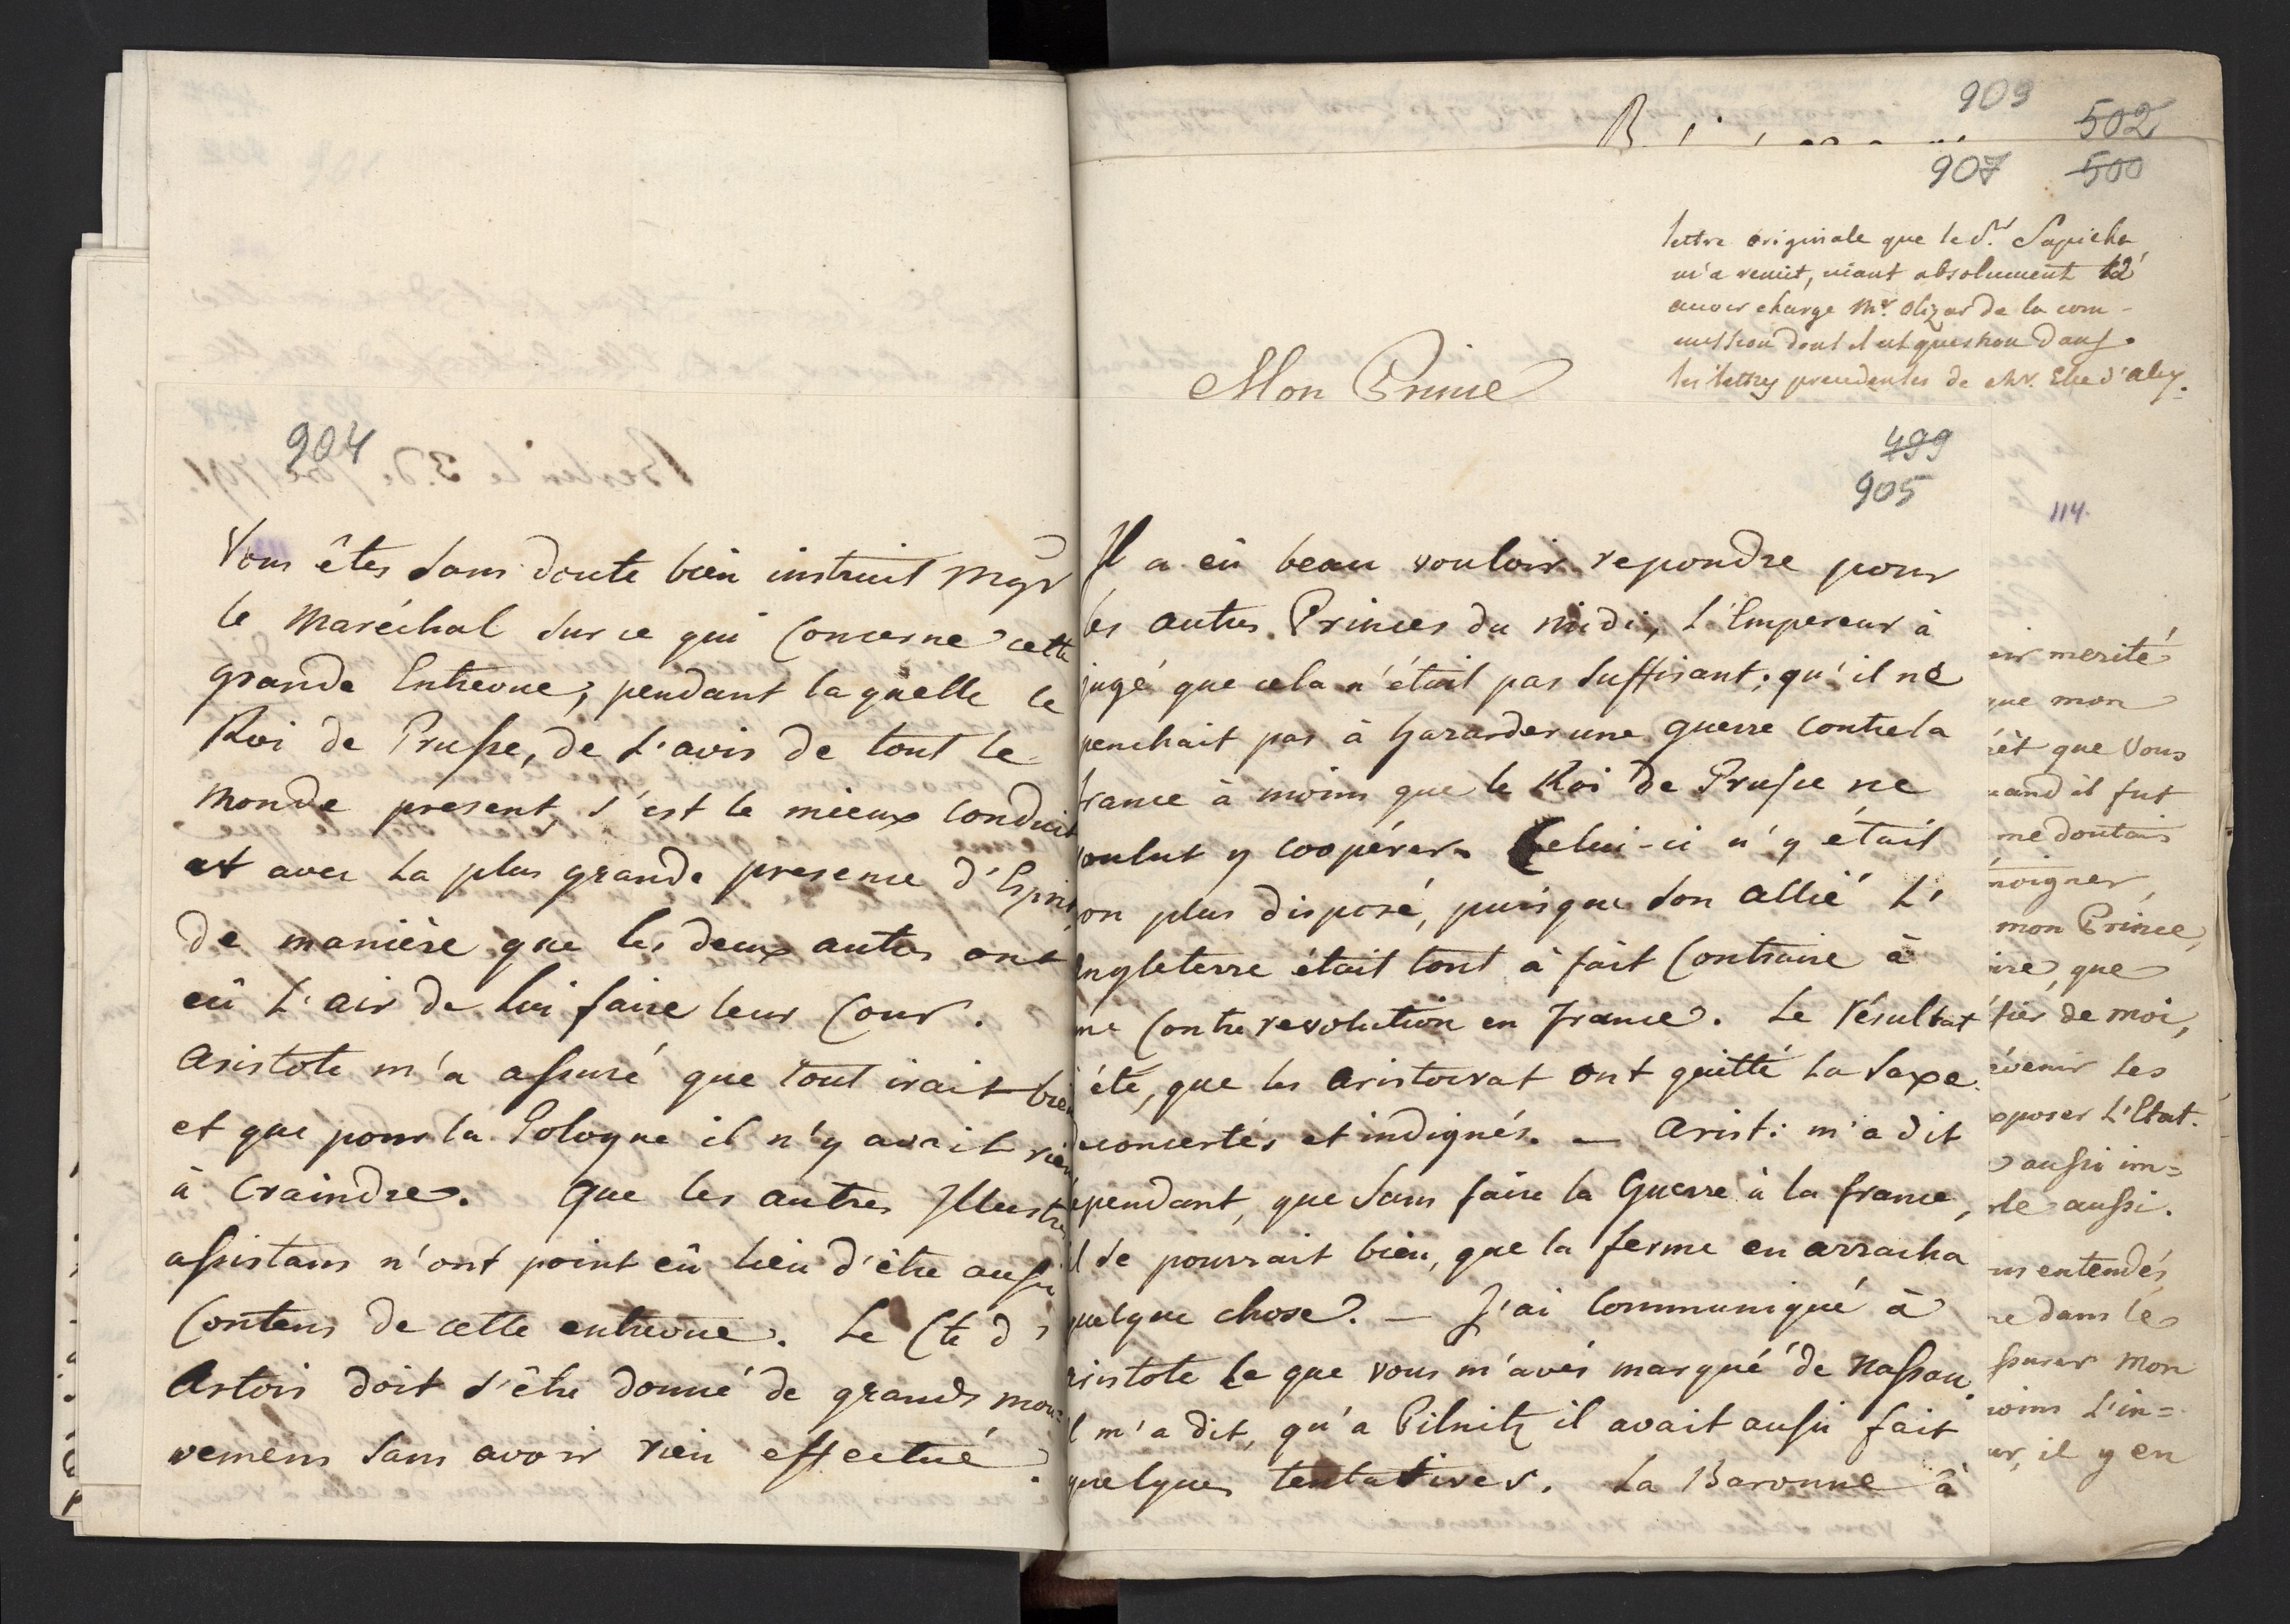 904
Vous êtes sans doute bien instruit Mgr
le Maréchal sur ce qui concerne cette
grande Entrevue, pendant laquelle le
Roi de Prusse, de l'avis de tout le
monde present, s'est le mieux conduit
et avec la plus grande presence d'Esprit,
de manière que les deux autres ont
eû l'air de lui faire leur Cour.
Aristote m'a assuré que tout irait bien
et que pour la Pologne il n'y avait rien
à craindre. Que les autres Illustres
assistans n'ont point eû lieu d'être aussi
contens de cette entrevue. Le Cte d'
Artois doit s'être donné de grands mou=
vemens sans avoir rien effectué.
909
502
907 500
lettre originale que le Sr. Sapieha
m'a remit, niant absolument
avoir chargé Mr. Olizar de la com-
mission dont il est question dans
les lettres precedentes de
Mon Prince
499
905
114.
Il a eû beau vouloir repondre pour
les autres Princes du midi, L'Empereur à
jugé que cela n'était pas suffisant; qu'il ne
penchait pas à hazarder une guerre contre la
france à moins que le Roi de Prusse ne
voulut y coopérer. Celui-ci n'y était
on plus disposé, puisque son allié L'
Angleterre était tout à fait contraire à
ne Contrerevolution en France. Le résultat
été, que les Aristocrat ont quitté la Saxe
concertés et indignés. — Arist: m'a dit
ependant, que sans faire la Guerre à la france,
il se pourrait bien, que la ferme en arracha
quelque chose. — J'ai communiqué à
ristote ce que vous m'avés marqué de Nassau.
l m'a dit, qu'a Pilnitz il avait aussi fait
quelques tentatives. La Baronne à
oir merité
que mon
rêt que Vous
uand il fut
me doutais
moigner,
mon Prince,
ire, que
tier de moi,
évenir les
xposer L'Etat.
aussi im=
rle aussi.
us entendés
re dans les
ssurer Mon
moins L'in=
ur, il y en